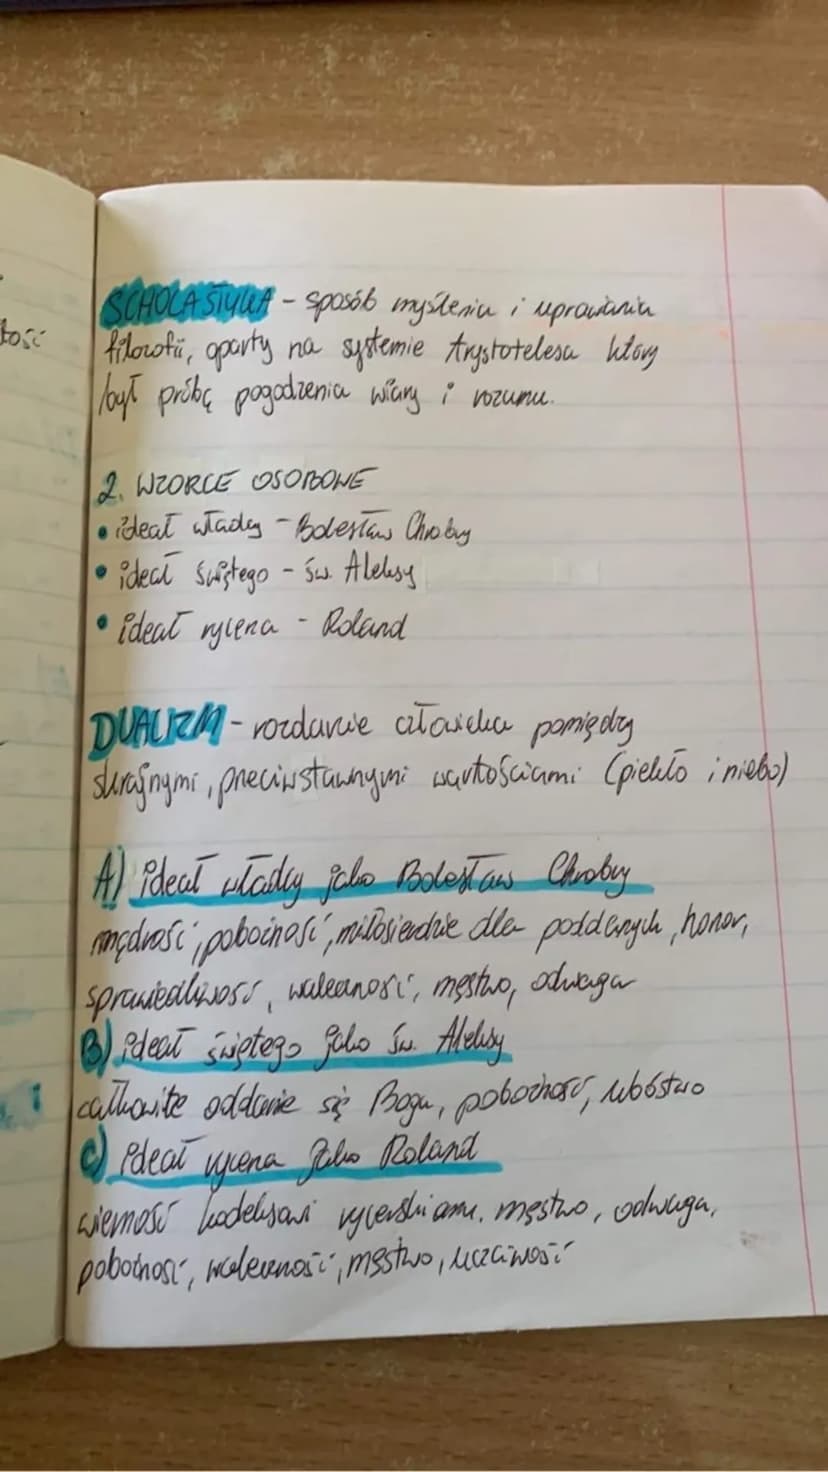 tość
SCHOLASTYKA - sposób myślenia i uprawiania
filozofii, oparty na systemie Arystotelesa który
był próbą pogodzenia wiary i rozumu.
2. WZORCE OSOBOWE
• ideał władcy - Bolesław Chrobry
• ideał świętego - św. Aleksy
• ideał rycerza - Roland
DUALIZM - rozdarcie człowieka pomiędzy
skrajnymi, przeciwstawnymi wartościami (piekło i niebo)
A) ideał władcy jako Bolesław Chrobry
mądrość, pobożność, miłosierdzie dla poddanych, honor,
sprawiedliwość, waleczność, męstwo, odwaga
B) ideał świętego jako św. Aleksy
całkowite oddanie się Bogu, pobożność, ubóstwo
C) ideał rycerza jako Roland
wierność kodeksowi rycerskiemu, męstwo, odwaga,
pobożność, waleczność, męstwo, uczciwość